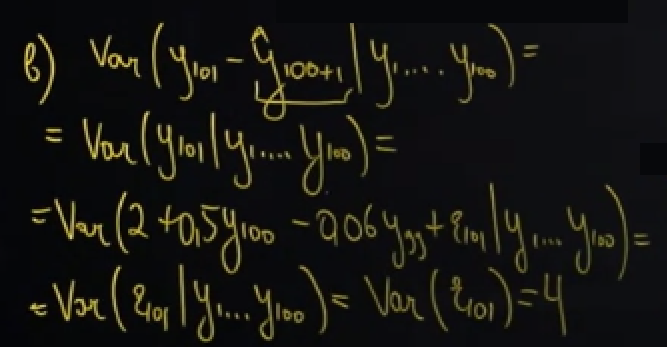 в) Var(y₁₀₁ - ŷ₁₀₀₊₁ | y₁....y₁₀₀) =
= Var(y₁₀₁ | y₁....y₁₀₀) =
= Var(2 + 0,5y₁₀₀ - 0,06y₉₉ + ε₁₀₁ | y₁...y₁₀₀) =
= Var(ε₁₀₁ | y₁...y₁₀₀) = Var(ε₁₀₁) = 4